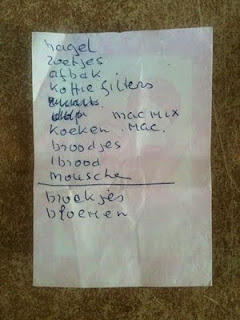 nagel
zoetjes
afbak
koffie filters
mac mix
koeken mac.
broodjes
1 brood
mousche
broekjes
bloemen